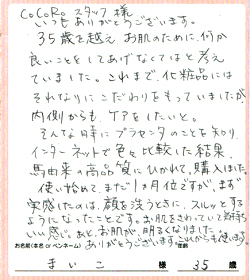 CoCoRo スタッフ 様
いつもありがとうございます。
35歳を越え お肌のために、何か
良いことをしてあげなくてはと考え
ていました。これまで、化粧品には
それなりにこだわりをもっていましたが
内側からも ケアをしたいと。
そんな時にプラセンタのことを知り、
インターネットで色々比較した結果、
馬由来の高品質にひかれて、購入しました。
使い始めて、まだ1ヶ月位ですが、まず
実感したのは、顔を洗うときに、スルッとする
ようになったことです。お肌をさわっていて気持ち
いい感じ。あと、お肌が、明るくなりました。
ありがとうございます。これからも使います。
お名前(本名 or ペンネーム) 年齢
まいこ 様 35 歳